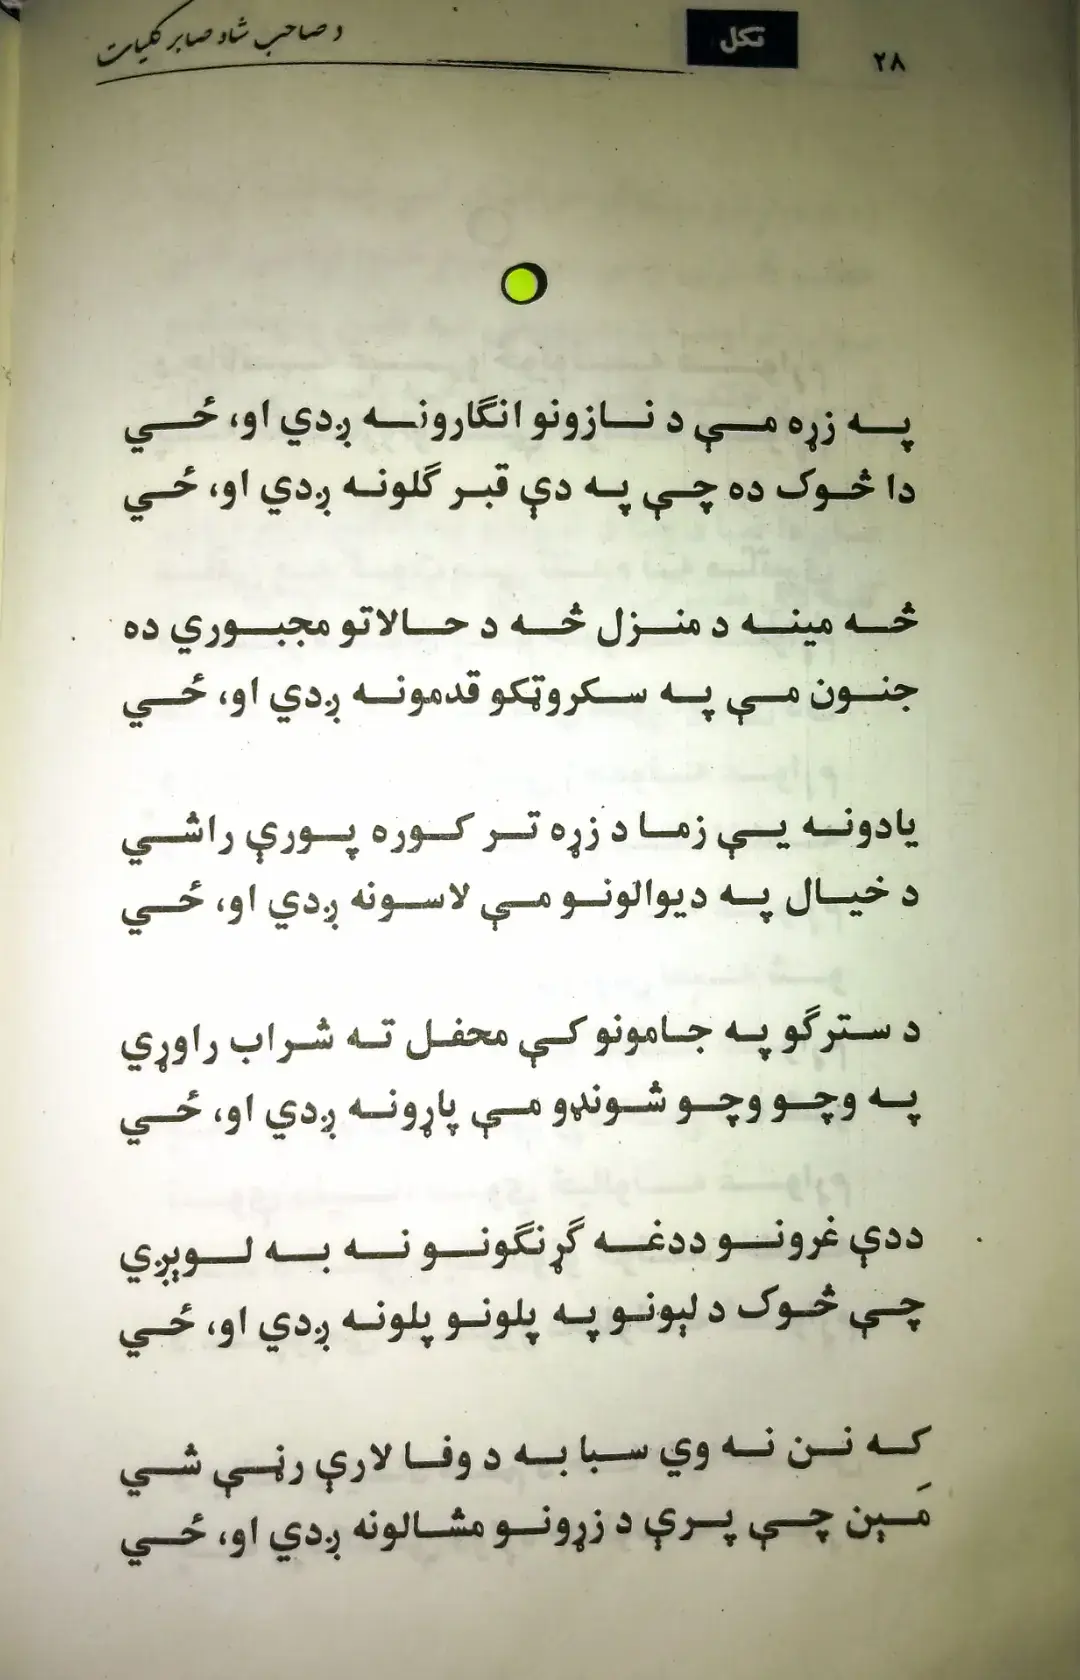 د صاحب شاه صابر کلیات
تکل
۲۸
په زړه مې د نازونو انګارونه ږدي او، ځي
دا څوک ده چې په دې قبر ګلونه ږدي او، ځي
څه مینه د منزل څه د حالاتو مجبوري ده
جنون مې په سکروټکو قدمونه ږدي او، ځي
یادونه یې زما د زړه تر کوره پورې راشي
د خیال په دیوالونو مې لاسونه ږدي او، ځي
د سترګو په جامونو کې محفل ته شراب راوړي
په وچو وچو شونډو مې پاړونه ږدي او، ځي
ددې غرونو ددغه ګړنګونو نه به لوېږي
چې څوک د لېونو په پلونو پلونه ږدي او، ځي
که نن نه وي سبا به د وفا لارې رڼې شي
مَېن چې پرې د زړونو مشالونه ږدي او، ځي